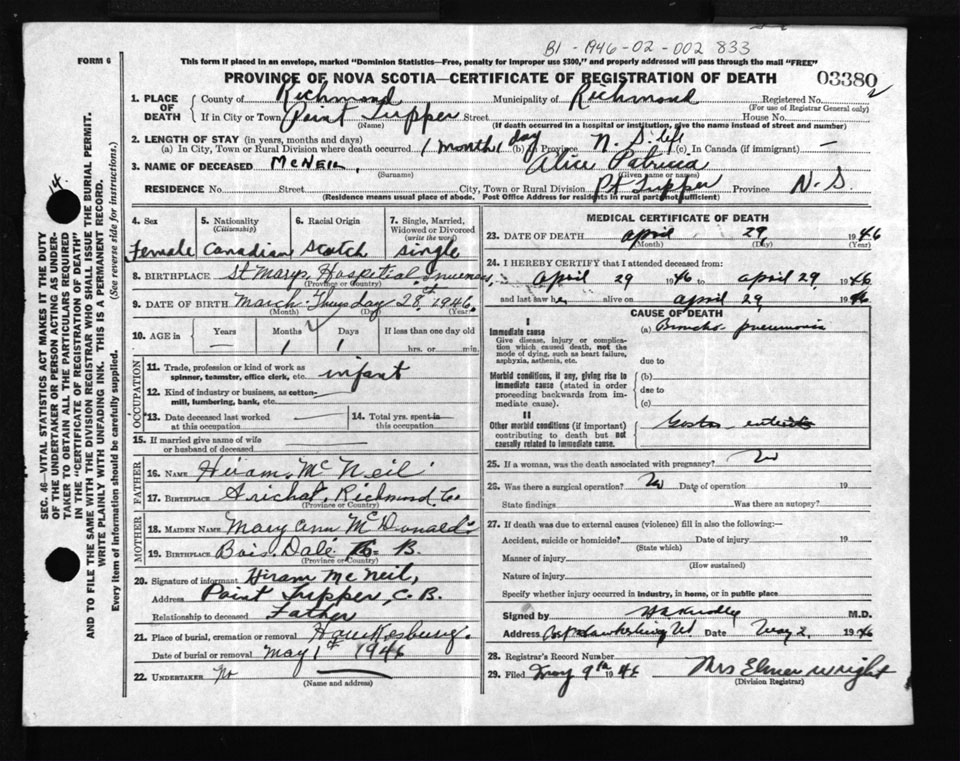 B1-1946-02-002 833
FORM 6
This form if placed in an envelope, marked "Dominion Statistics—Free, penalty for improper use $300," and properly addressed will pass through the mail "FREE"
PROVINCE OF NOVA SCOTIA—CERTIFICATE OF REGISTRATION OF DEATH
03380
2
1. PLACE OF DEATH
County of Richmond Municipality of Richmond Registered No.
(For use of Registrar General only)
If in City or Town Point Tupper Street House No.
(Name) (If death occurred in a hospital or institution, give the name instead of street and number)
2. LENGTH OF STAY (in years, months and days)
(a) In City, Town or Rural Division where death occurred 1 month 1 day (b) in Province N. S. life (c) in Canada (if immigrant) —
3. NAME OF DECEASED McNEIL, Alice Patricia
(Surname) (Given name or names)
RESIDENCE No. Street City, Town or Rural Division Pt Tupper Province N. S.
(Residence means usual place of abode. Post Office Address for residents in rural parts not sufficient)
4. Sex
Female
5. Nationality
(Citizenship)
Canadian
6. Racial Origin
Scotch
7. Single, Married, Widowed or Divorced
(write the word)
single
8. BIRTHPLACE St Marys Hospital,
(Province or Country)
9. DATE OF BIRTH March Thursday 28th 1946.
(Month) (Day) (Year)
10. AGE in Years Months Days If less than one day old
— 1 1 hrs. or min.
OCCUPATION
11. Trade, profession or kind of work as spinner, teamster, office clerk, etc. infant
12. Kind of industry or business, as cotton-mill, lumbering, bank, etc.
13. Date deceased last worked at this occupation
14. Total yrs. spent in this occupation
15. If married give name of wife or husband of deceased
FATHER
16. NAME Hiram McNeil
17. BIRTHPLACE Arichat, Richmond Co.
(Province or Country)
MOTHER
18. MAIDEN NAME Mary Ann McDonald
19. BIRTHPLACE Bois Dale B.
(Province or Country)
20. Signature of informant Hiram McNeil,
Address Point Tupper, C. B.
Relationship to deceased Father
21. Place of burial, cremation or removal Hawkesbury.
Date of burial or removal May 1st 1946
22. UNDERTAKER No
(Name and address)
MEDICAL CERTIFICATE OF DEATH
23. DATE OF DEATH April 29 1946
(Month) (Day) (Year)
24. I HEREBY CERTIFY that I attended deceased from:
April 29 1946 to April 29 1946
and last saw her alive on April 29 1946
CAUSE OF DEATH
I
Immediate cause (a) Broncho-pneumonia
Give disease, injury or complication which caused death, not the mode of dying, such as heart failure, asphyxia, asthenia, etc.
due to
Morbid conditions, if any, giving rise to immediate cause (stated in order proceeding backwards from immediate cause).
(b)
due to
(c)
II
Other morbid conditions (if important) contributing to death but not causally related to immediate cause.
Gastro-enteritis
25. If a woman, was the death associated with pregnancy? No
26. Was there a surgical operation? No Date of operation 19
State findings Was there an autopsy?
27. If death was due to external causes (violence) fill in also the following:—
Accident, suicide or homicide? Date of injury 19
(State which)
Manner of injury
(How sustained)
Nature of injury
Specify whether injury occurred in industry, in home, or in public place
Signed by M.D.
Address Port Hawkesbury Date May 2, 1946
28. Registrar's Record Number
29. Filed May 9th 1946 Mrs Elmer Wright
(Division Registrar)
14.
SEC. 46—VITAL STATISTICS ACT MAKES IT THE DUTY
OF THE UNDERTAKER OR PERSON ACTING AS UNDER-
TAKER TO OBTAIN ALL THE PARTICULARS REQUIRED
IN THE "CERTIFICATE OF REGISTRATION OF DEATH"
AND TO FILE THE SAME WITH THE DIVISION REGISTRAR WHO SHALL ISSUE THE BURIAL PERMIT.
WRITE PLAINLY WITH UNFADING INK. THIS IS A PERMANENT RECORD.
Every item of information should be carefully supplied. (See reverse side for instructions).